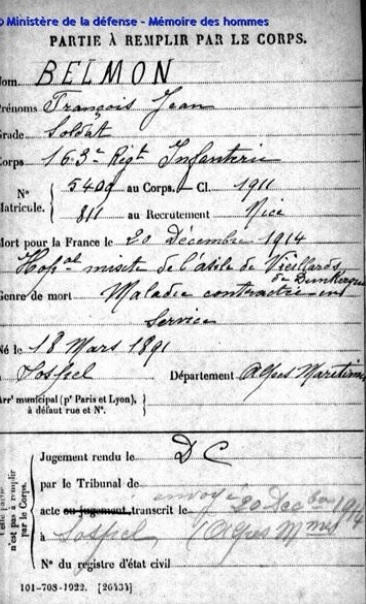 © Ministère de la défense - Mémoire des hommes
PARTIE À REMPLIR PAR LE CORPS.
Nom BELMON
Prénoms François Jean
Grade Soldat
Corps 163e Régt Infanterie
N° Matricule. { 5409 au Corps. — Cl. 1911
811 au Recrutement Nice
Mort pour la France le 20 Décembre 1914
à Hopal mixte de l'asile de Vieillards de Dunkerque
Genre de mort Maladie contractée en
Service
Né le 18 Mars 1891
à Sospel Département Alpes Maritimes
Arrt municipal (pr Paris et Lyon), à défaut rue et N°. }
Cette partie n'est pas à remplir par le Corps.
Jugement rendu le D C
par le Tribunal de
envoyé
acte ou jugement transcrit le 20 Decbre 1914
à Sospel (Alpes Mmes
N° du registre d'état civil
101-708-1922. [26434]